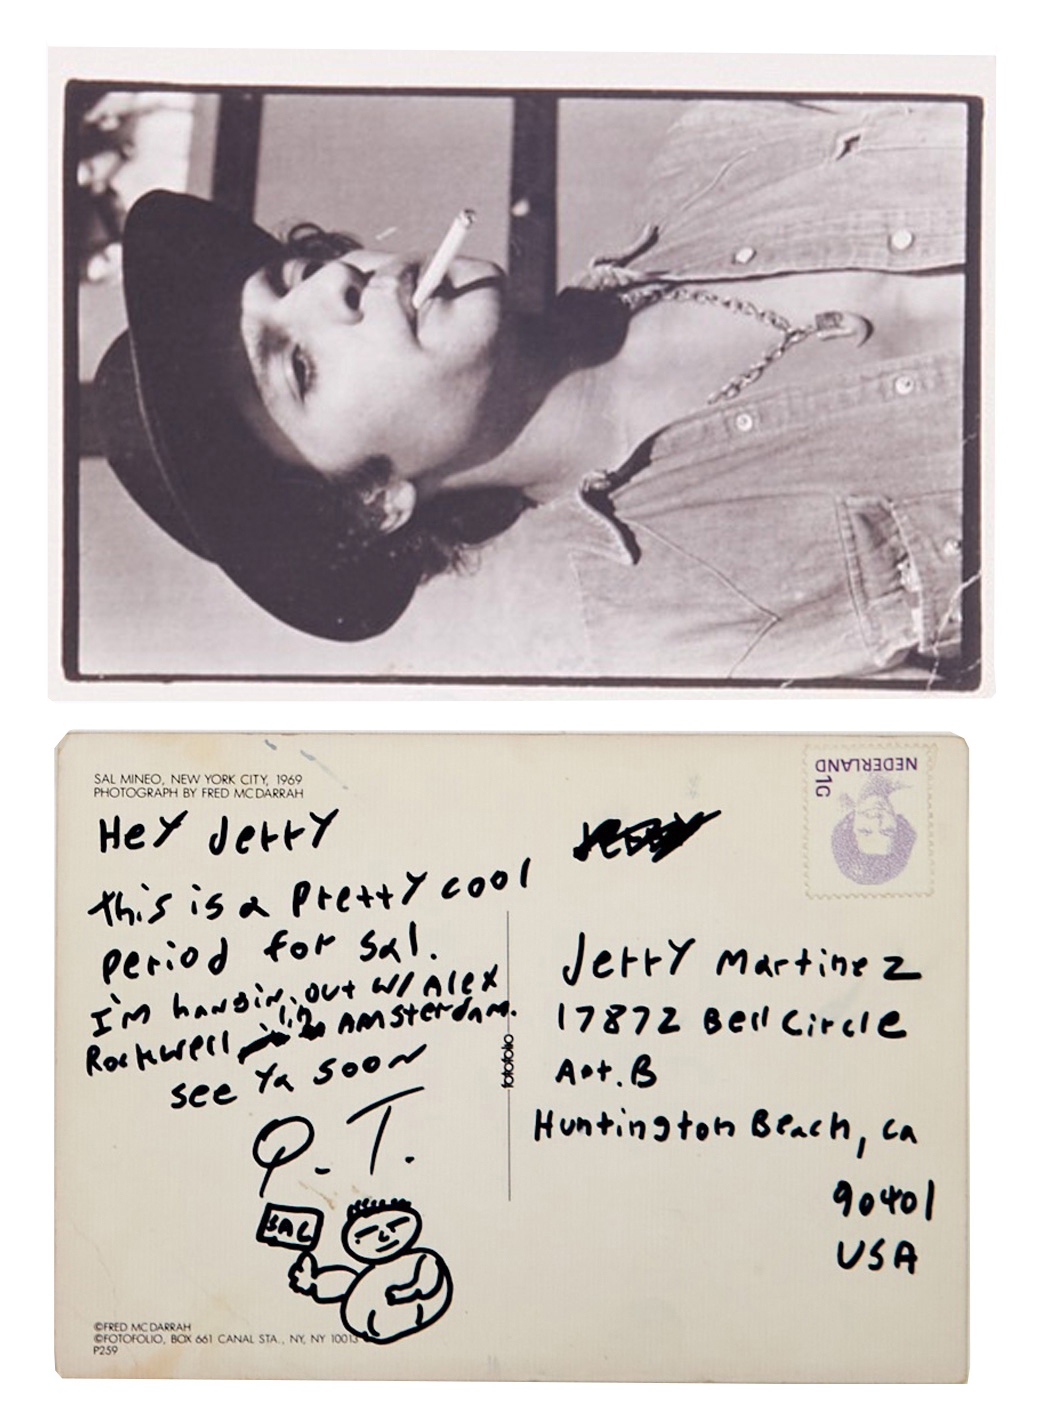 SAL MINEO, NEW YORK CITY, 1969
PHOTOGRAPH BY FRED MCDARRAH
HeY JerrY
this is a PrettY cool
period for Sal.
I'm hangin, out w/ Alex
Rockwell in AMsterdam.
see Ya soon
Q. T.
SAL
©FRED MCDARRAH
©FOTOFOLIO, BOX 661 CANAL STA., NY, NY 10013
P259
fotofolio
NEDERLAND
1G
JerrY Martinez
17872 Bell Circle
Apt. B
Huntington Beach, ca
90401
USA